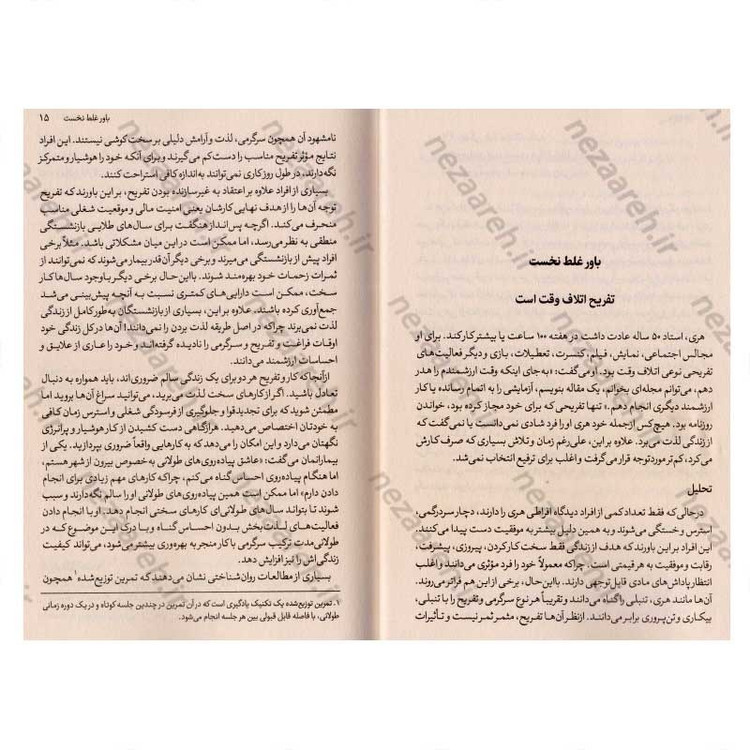 باور غلط نخست
تفریح اتلاف وقت است
هری، استاد ۵۰ ساله عادت داشت در هفته ۱۰۰ ساعت یا بیشتر کار کند. برای او
مجالس اجتماعی، نمایش، فیلم، کنسرت، تعطیلات، بازی و دیگر فعالیت‌های
تفریحی نوعی اتلاف وقت بود. او می‌گفت: «به‌جای اینکه وقت ارزشمندم را هدر
دهم، می‌توانم مجله‌ای بخوانم، یک مقاله بنویسم، آزمایشی را به اتمام رسانده یا کار
ارزشمند دیگری انجام دهم.» تنها تفریحی که برای خود مجاز کرده بود، خواندن
روزنامه بود. هیچ‌کس ازجمله خود هری او را فرد شادی نمی‌دانست یا نمی‌گفت که
از زندگی لذت می‌برد. علاوه بر این، علی‌رغم زمان و تلاش بسیاری که صرف کارش
می‌کرد، کم‌تر مورد توجه قرار می‌گرفت و اغلب برای ترفیع انتخاب نمی‌شد.
تحلیل
درحالی‌که فقط تعداد کمی از افراد دیدگاه افراطی هری را دارند، دچار سردرگمی،
استرس و خستگی می‌شوند و به همین دلیل بیشتر به موفقیت دست پیدا می‌کنند.
این افراد بر این باورند که هدف از زندگی فقط سخت کار کردن، پیروزی، پیشرفت،
رقابت و موفقیت به هر قیمتی است. چراکه معمولاً خود را فرد مؤثری می‌دانند و اغلب
انتظار پاداش‌های مادی قابل توجهی دارند. بااین‌حال، برخی از این هم فراتر می‌روند.
آن‌ها مانند هری، تنبلی را گناه می‌دانند و تقریباً هر نوع سرگرمی و تفریح را با تنبلی،
بیکاری و تن‌پروری برابر می‌دانند. ازنظر آن‌ها تفریح، مثمر ثمر نیست و تأثیرات
باور غلط نخست ۱۵
نامشهود آن همچون سرگرمی، لذت و آرامش دلیلی بر سخت‌کوشی نیستند. این افراد
نتایج مؤثر تفریح مناسب را دست‌کم می‌گیرند و برای آنکه خود را هوشیار و متمرکز
نگه دارند، در طول روز کاری نمی‌توانند به‌اندازه کافی استراحت کنند.
بسیاری از افراد علاوه بر اعتقاد به غیرسازنده بودن تفریح، بر این باورند که تفریح
توجه آن‌ها را از هدف نهایی کارشان یعنی امنیت مالی و موقعیت شغلی مناسب
منحرف می‌کند. اگرچه پس‌انداز هنگفت برای سال‌های طلایی بازنشستگی
منطقی به نظر می‌رسد، اما ممکن است در این میان مشکلاتی باشد. مثلاً برخی
افراد پیش از بازنشستگی می‌میرند و برخی دیگر آن‌قدر بیمار می‌شوند که نمی‌توانند از
ثمرات زحمات خود بهره‌مند شوند. بااین‌حال برخی دیگر با وجود سال‌ها کار
سخت، ممکن است دارایی‌های کمتری نسبت به آنچه پیش‌بینی می‌شد
جمع‌آوری کرده باشند. علاوه بر این، بسیاری از بازنشستگان به‌طور کامل از زندگی
لذت نمی‌برند چراکه در اصل طریقه لذت بردن را نمی‌دانند! آن‌ها در کل زندگی خود
اوقات فراغت و تفریح و سرگرمی را نادیده گرفته‌اند و خود را عاری از علایق و
احساسات ارزشمند می‌دانند.
ازآنجاکه کار و تفریح هر دو برای یک زندگی سالم ضروری‌اند، باید همواره به دنبال
تعادل باشید. اگر از کارهای سخت لذت می‌برید، می‌توانید سراغ آن‌ها بروید اما
مطمئن شوید که برای تجدید قوا و جلوگیری از فرسودگی شغلی و استرس زمان کافی
به خودتان اختصاص می‌دهید. هرازگاهی دست کشیدن از کار هوشیار و پرانرژی
نگهتان می‌دارد و این امکان را می‌دهد که به کارهایی واقعاً ضروری بپردازید. یکی از
بیمارانمان می‌گفت: «عاشق پیاده‌روی‌های طولانی به‌خصوص بیرون از شهر هستم،
اما هنگام پیاده‌روی احساس گناه می‌کنم، چراکه کارهای مهم زیادی برای انجام
دادن دارم» اما ممکن است همین پیاده‌روی‌های طولانی او را سالم نگه دارند و سبب
شوند تا بتواند سال‌های طولانی‌ای کارهای سختی انجام دهد. او با انجام دادن
فعالیت‌های لذت‌بخش بدون احساس گناه و با درک این موضوع که در
طولانی‌مدت ترکیب سرگرمی با کار منجر به بهره‌وری بیشتر می‌شود، می‌تواند کیفیت
زندگی‌اش را نیز افزایش دهد.
بسیاری از مطالعات روان‌شناختی نشان می‌دهند که تمرین توزیع‌شده۱ همچون
۱. تمرین توزیع‌شده یک تکنیک یادگیری است که در آن تمرین در چندین جلسه کوتاه و در یک دوره زمانی
طولانی، با فاصله قابل قبولی بین هر جلسه انجام می‌شود.
nezaareh.ir